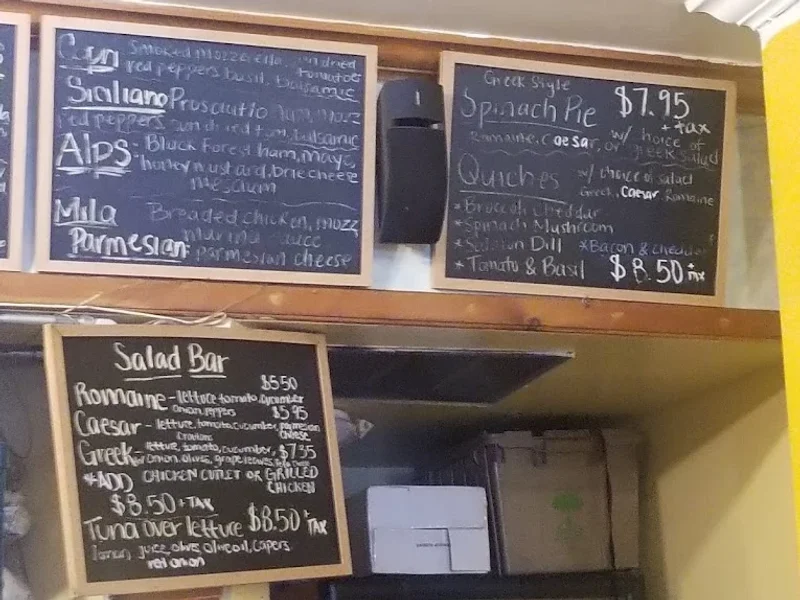 Smoked mozzarella, sun dried
red peppers basil, tomatoes
Balsamic
Siciliano Proscuitto
red peppers sun dried tom, balsamic
Alps- Black Forest ham, mayo,
honey mustard, brie cheese
mesclum
Mila Breaded chicken, mozz
marina sauce
Parmesian: parmesian cheese
Greek Style
Spinach Pie $7.95
+ tax
Romaine, Caesar, or w/ choice of
greek salad
Quiches w/ choice of salad
Greek, Caesar, Romaine
*Broccoli Cheddar
*Spinach Mushroom
*Salmon Dill *Bacon & Cheddar
*Tomato & Basil $8.50 + tax
Salad Bar
$5.50
Romaine - lettuce tomato, cucumber
onion, peppers $5.95
Caesar - lettuce, tomato, cucumber, parmesian
croutons cheese
Greek - lettuce, tomato, cucumber, $7.35
onion, olives, grape leaves, feta
*ADD CHICKEN CUTLET OR GRILLED
CHICKEN
$8.50 + TAX
Tuna over lettuce $8.50 + TAX
lemon juice, olives, olive oil, capers
red onion